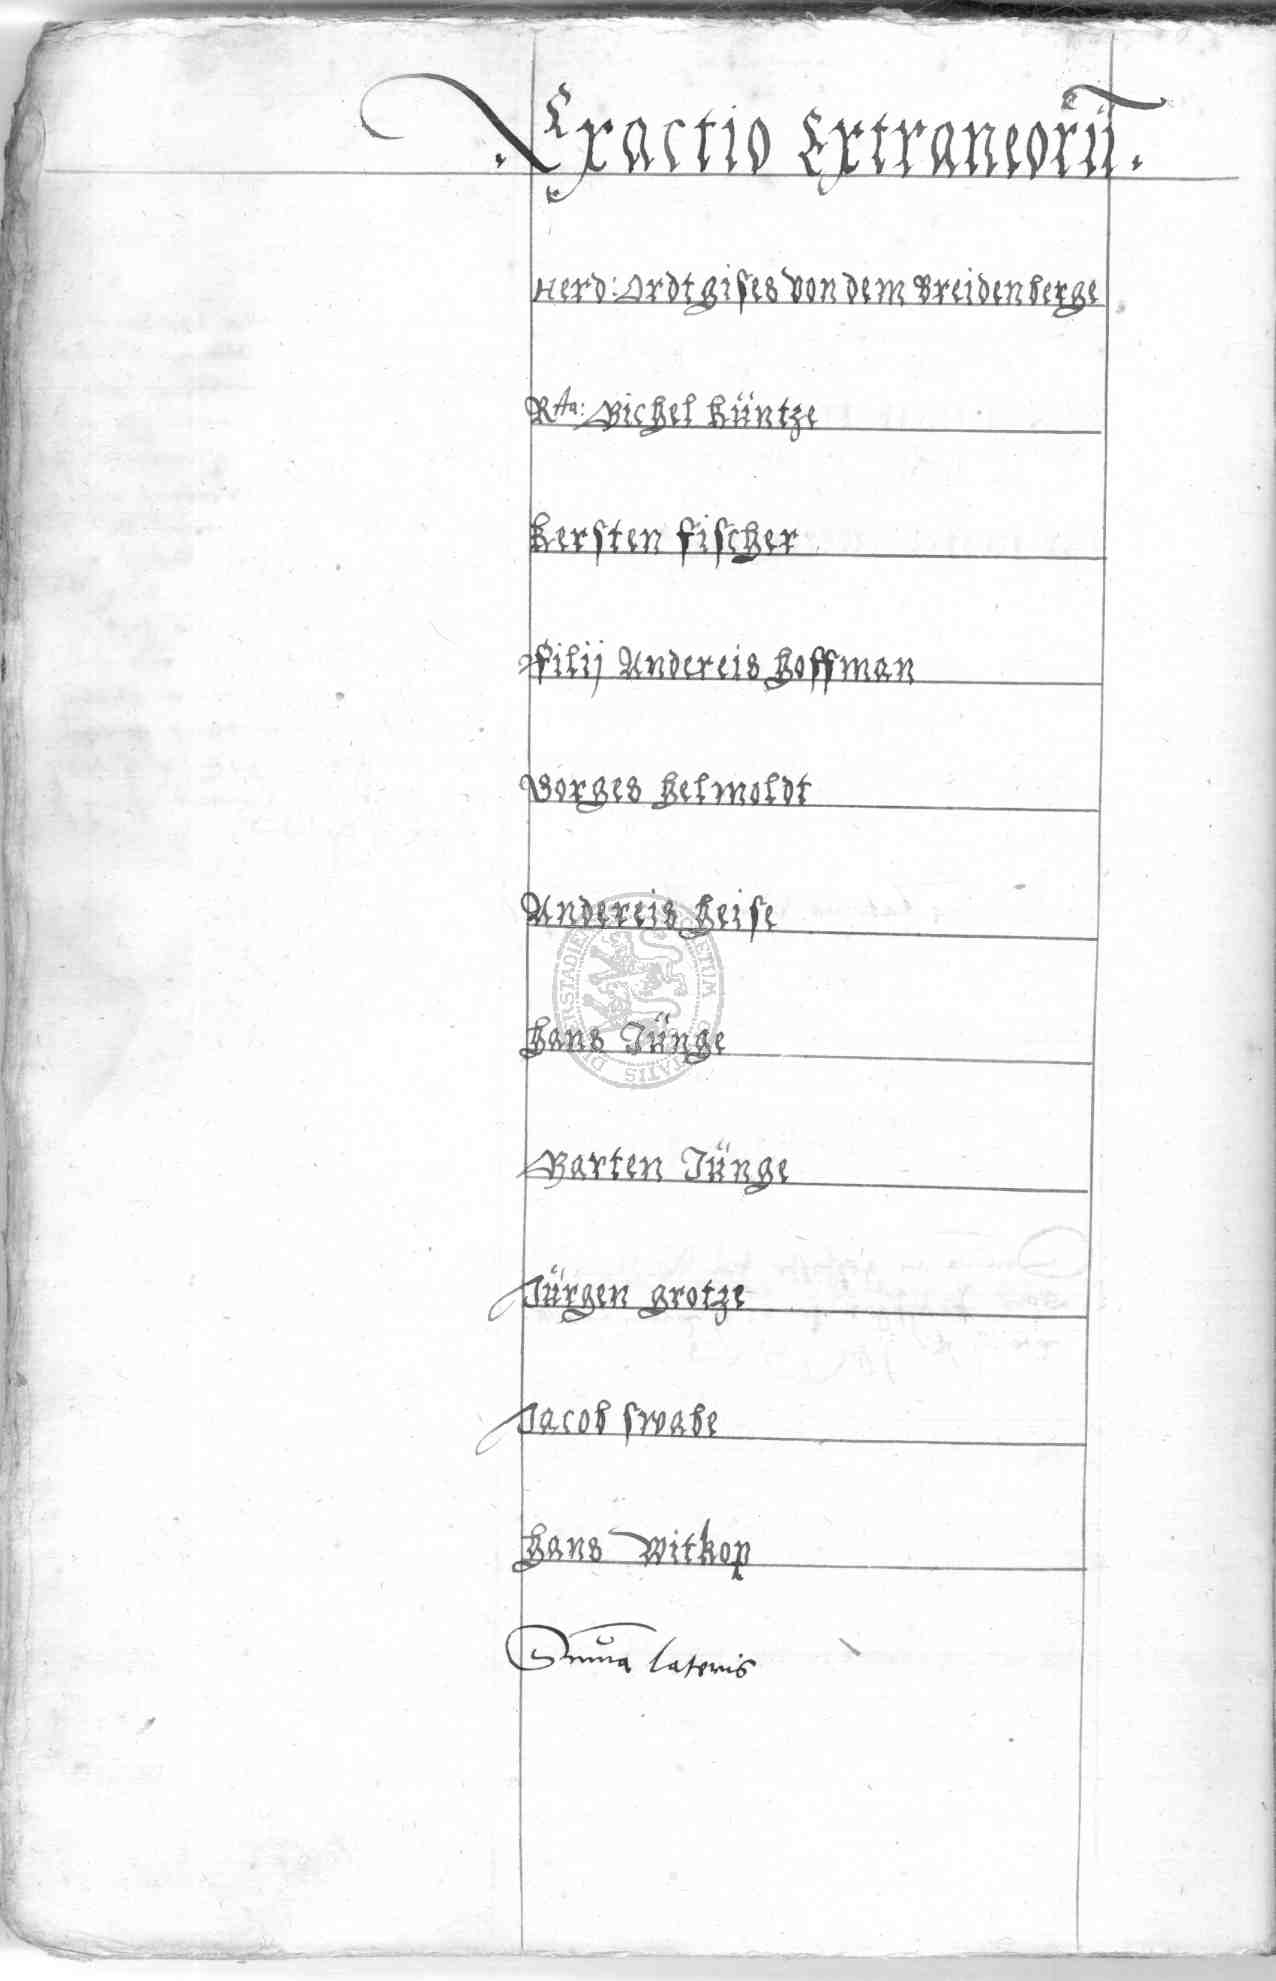 Exactio Extraneorū.
Herd: Ordtgises von dem Breidenberge
Rta: Michel Küntze
Kersten Fischer
Filij Andereis Hoffman
Borges Helmoldt
Andereis Heise
Hans Jünge
Marten Jünge
Jürgen grotze
Jacob swabe
Hans Witkop
Summa lateris